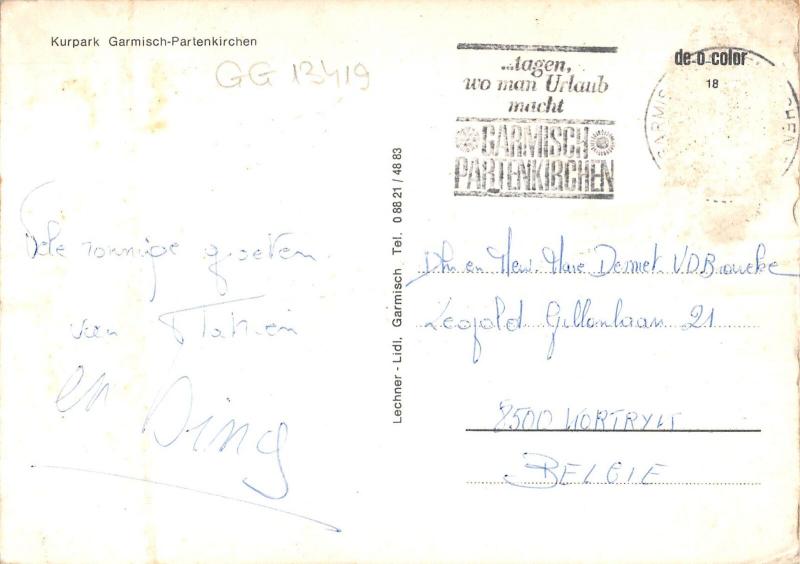 Kurpark Garmisch-Partenkirchen
GG 13419
...tagen,
wo man Urlaub
macht
GARMISCH
PARTENKIRCHEN
de-o-color
18
Lechner - Lidl, Garmisch Tel. 0 88 21 / 48 83
Vele zonnige groeten
van
en
Dhr en Mevr
Leopold Gillonlaan 21
8500 KORTRYK
BELGIE